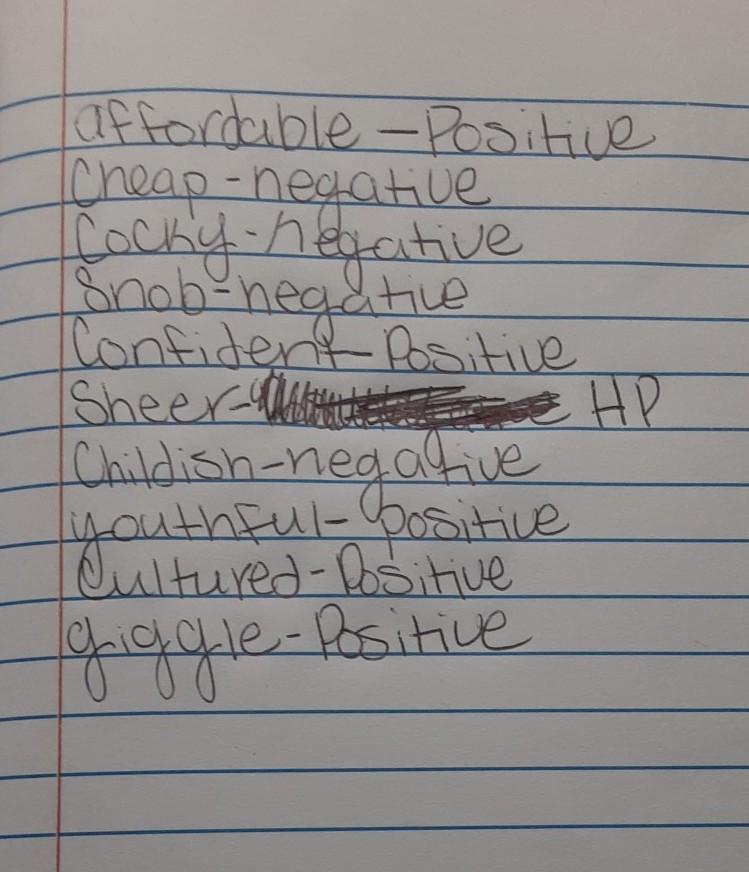 affordable - Positive
Cheap - negative
Cocky - negative
Snob - negative
Confident - Positive
Sheer - HP
Childish - negative
youthful - positive
Cultured - Positive
giggle - Positive